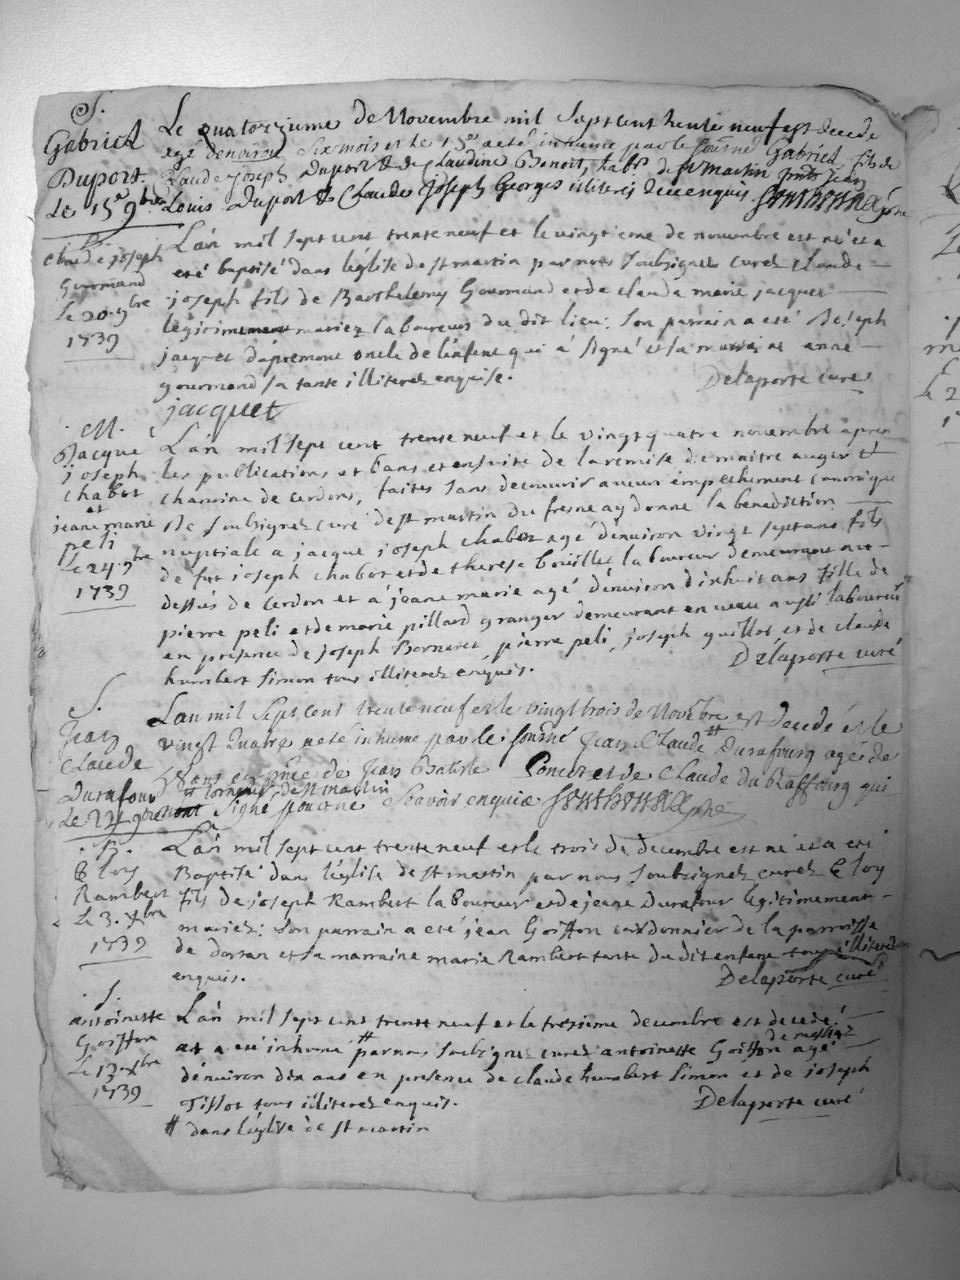 S.
Gabriel
Duport.
Le 15e 9bre
Le quatorzieme de Novembre mil Sept cent trente neuf est decede
agé denviron Six mois et le 15e a eté inhumé par le soussigné Gabriel fils de
Claude Joseph Duport & de Claudine Benoit, habts de st martin pnts Jean
Louis Duport & Claude Joseph Georges illiterés de ce enquis. Sonthonnax pbre
B.
Claude joseph
Gourmand
Le 20 9bre
1739
L'an mil sept cent trente neuf et le vingtieme de novembre est né et a
eté baptisé dans leglise de st martin par nous soubsignez curez claude
joseph fils de Barthelemy Gourmand et de claude marie jacquet
legitimement mariez laboureurs du dit lieu: son parrain a eté Joseph
jacquet d'apremont oncle de l'enfent qui a signé et sa marraine anne
gourmand sa tante illiterez enquise.
Delaporte curé
jacquet
M.
Jacque
joseph
chabot
et
jeane marie
peli
Le 24 9bre
1739
L'an mil sept cent trente neuf et le vingt quatre novembre apres
les publications et bans et ensuite de la remise de maitre auger
chanoine de cerdons, faites sans decouvrir aucun empechement canonique
Je soubsignez curé de st martin du fresne ay donné la benediction
nuptiale a jacque joseph chabot agé denviron vingt sept ans fils
de fut joseph chabot et de therese bouillet laboureur demeurant au
dessus de cerdon et a jeane marie agé denviron dixhuit ans fille de
pierre peli et de marie pillard granger demeurant en aussi laboureur
en presence de joseph Bornaret, pierre peli, joseph guillot et de claude
humbert simon tous illiterez enquis.
Delaporte curé
S.
Jean
Claude
Durafour
Le 24 9bre
L'an mil Sept cent trente neuf et le vingt trois de Novébre est decedé et le
vingt Quatre a eté inhumé par le soussigné Jean Claude # Durafourg agé de
ans en pnce de Jean Batiste et de Claude du Raffourg qui
# de st martin
nont Signé pour ne Scavoir enquis Sonthonnax pbre
B.
Eloy
Rambert
Le 3. xbre
1739
L'an mil sept cent trente neuf et le trois de decembre est né et a eté
Baptisé dans l'église de st martin par nous soubsignez curez Eloy
fils de joseph Rambert laboureur et de jeane Durafour legitimement
mariez: son parrain a eté jean Goiffon cordonnier de la parroisse
de dortan et sa marraine marie Rambert tante du dit enfant tous illiterez
enquis.
Delaporte curé
S.
antoinette
Goiffon
Le 13 xbre
1739
L'an mil sept cent trente neuf et le tresieme decembre est decedé
et a eté inhumé # par nous soubsignez curez antoinette Goiffon agé
denviron dix ans en presence de claude humbert simon et de joseph
Tissot tous illiterez enquis.
Delaporte curé
# dans l'église de st martin